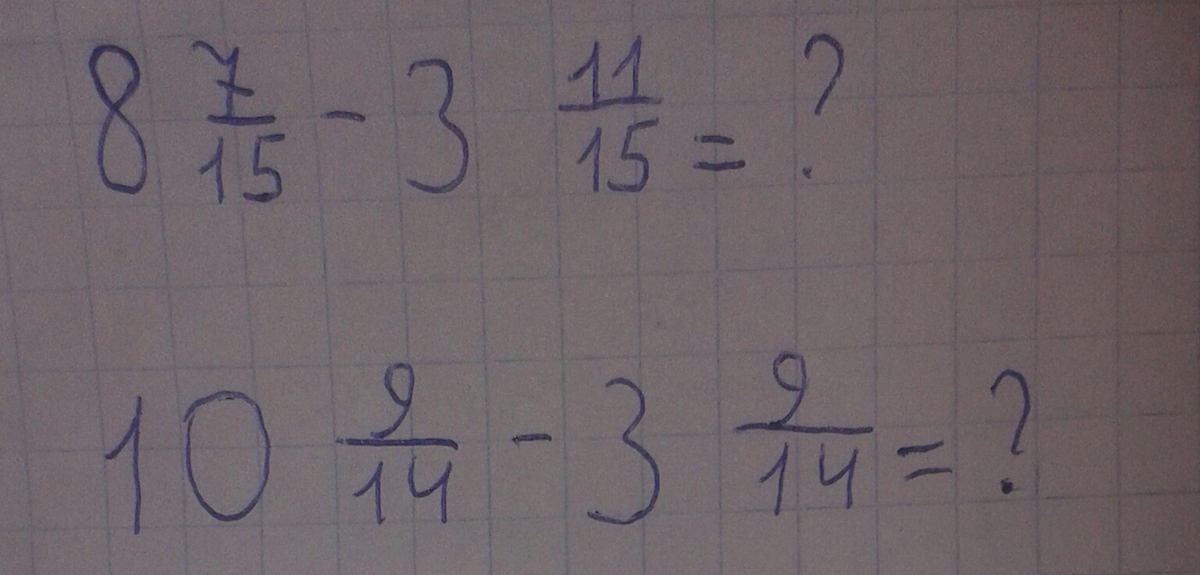 8 7/15 - 3 11/15 = ?
10 9/14 - 3 9/14 = ?